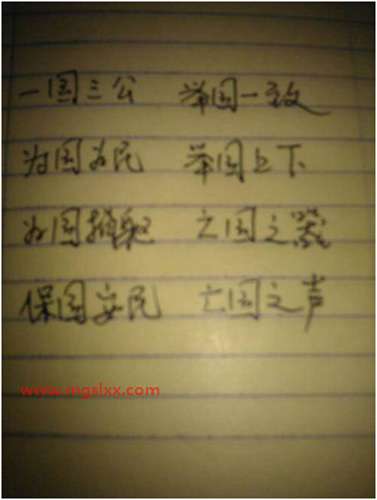 一国三公 举国一致
为国为民 举国上下
为国捐躯 亡国之器
保国安民 亡国之声
www.mgslxx.com